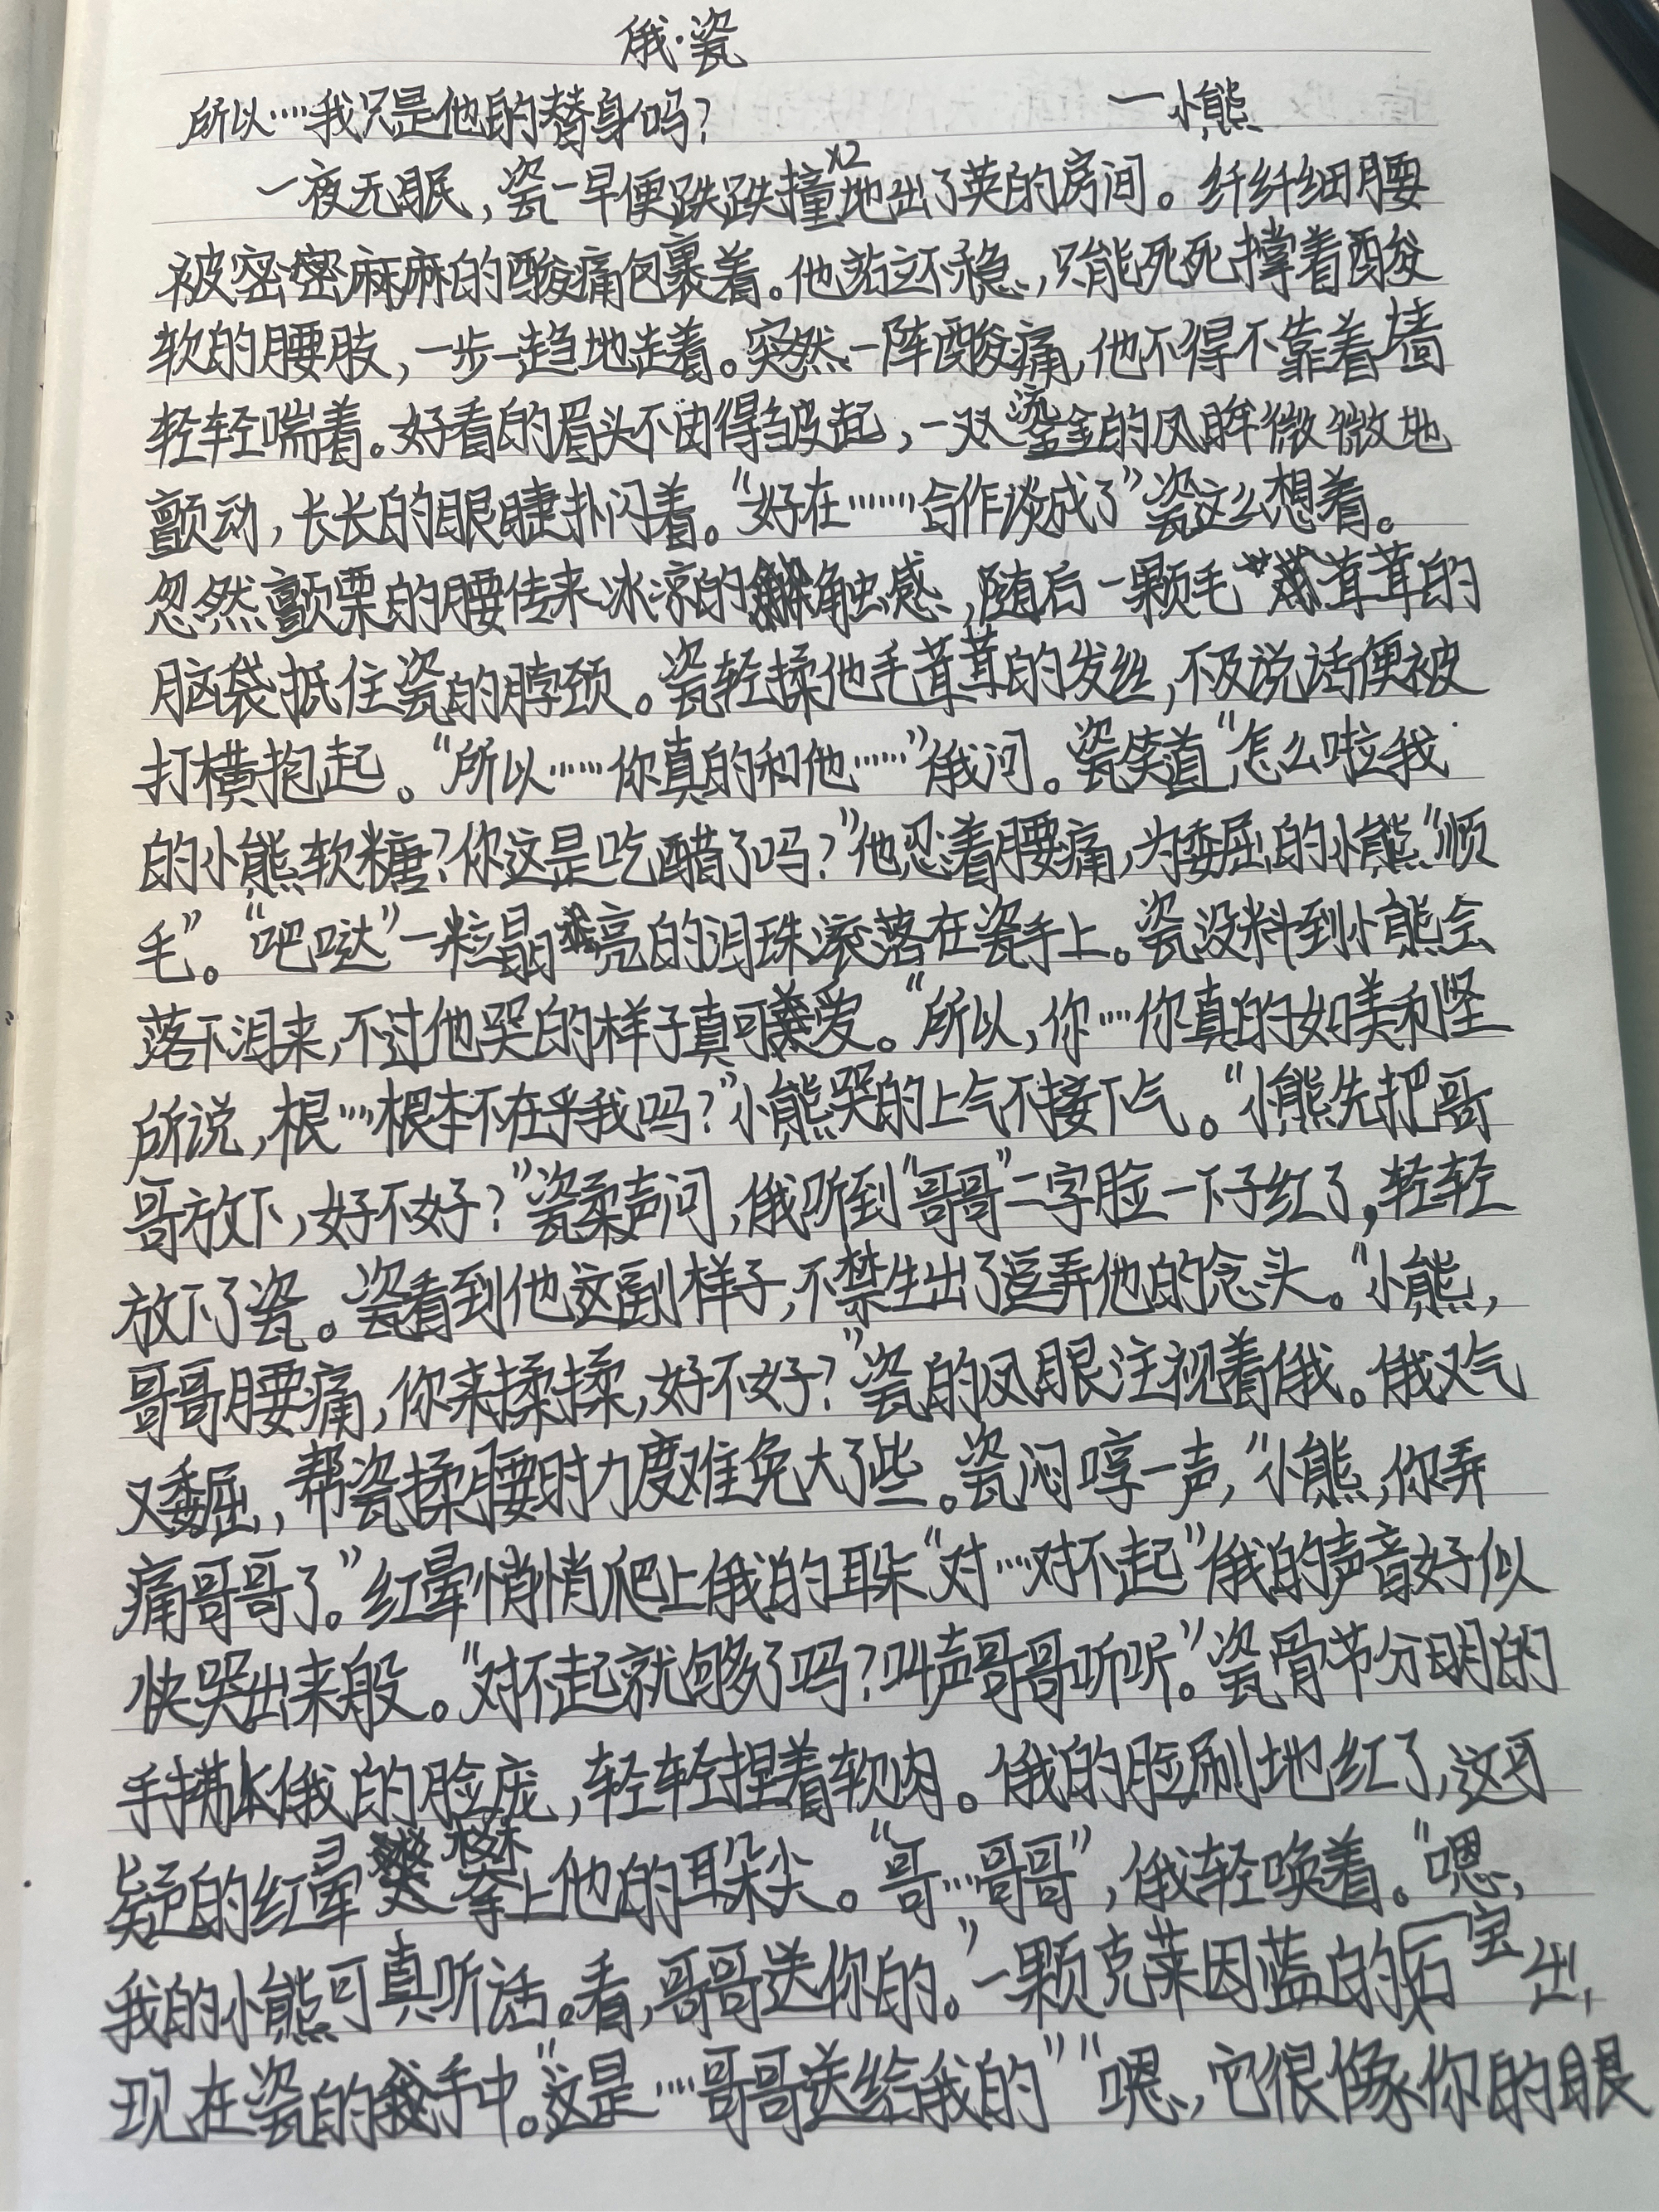 俄·瓷
所以……我只是他的替身吗? 一小熊
一夜无眠，瓷一早便跌跌撞x2地出了英的房间。纤纤细腰
被密密麻麻的酸痛包裹着。他站立不稳，只能死死撑着酸
软的腰肢，一步一趋地走着。突然一阵酸痛，他不得不靠着墙
轻轻喘着。好看的眉头不由得皱起，一双鎏金的凤眸微微地
颤动，长长的眼睫扑闪着。“好在……合作谈成了”瓷这么想着。
忽然颤栗的腰传来冰凉的触感，随后一颗毛茸茸的
脑袋抵住瓷的脖颈。瓷轻揉他毛茸茸的发丝，不及说话便被
打横抱起。“所以……你真的和他……”俄问。瓷笑道“怎么啦我
的小熊软糖?你这是吃醋了吗?”他忍着腰痛，为委屈的小熊“顺
毛”。“吧哒”一粒晶亮的泪珠滚落在瓷手上。瓷没料到小熊会
落下泪来，不过他哭的样子真可爱。“所以，你……你真的如美利坚
所说，根……根本不在乎我吗?”小熊哭的上气不接下气。“小熊先把哥
哥放下，好不好?”瓷柔声问，俄听到“哥哥”二字脸一下子红了，轻轻
放下了瓷。瓷看到他这副样子，不禁生出了逗弄他的念头。“小熊，
哥哥腰痛，你来揉揉，好不好?”瓷的凤眼注视着俄。俄又气
又委屈，帮瓷揉腰时力度难免大了些。瓷闷哼一声，“小熊，你弄
痛哥哥了。”红晕悄悄爬上俄的耳朵“对……对不起”俄的声音好似
快哭出来般。“对不起就够了吗?叫声哥哥听听。”瓷骨节分明的
手拂上俄的脸庞，轻轻捏着软肉。俄的脸刷地红了，这可
疑的红晕攀上他的耳朵尖。“哥……哥哥”，俄轻唤着。“嗯，
我的小熊可真听话。看，哥哥送你的。”一颗克莱因蓝的宝石出
现在瓷的手中。“这是……哥哥送给我的”“嗯，它很像你的眼